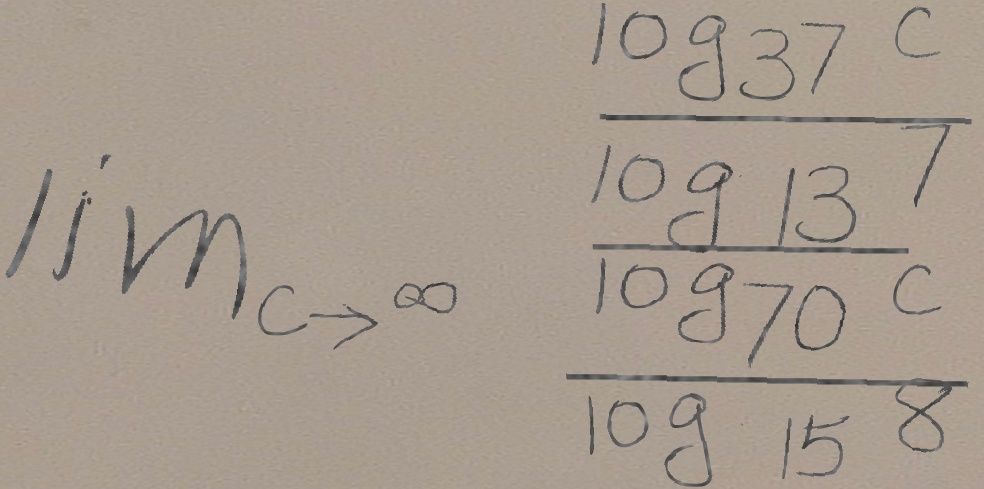 lim c→∞
log 37 c
log 13 7
log 70 c
log 15 8